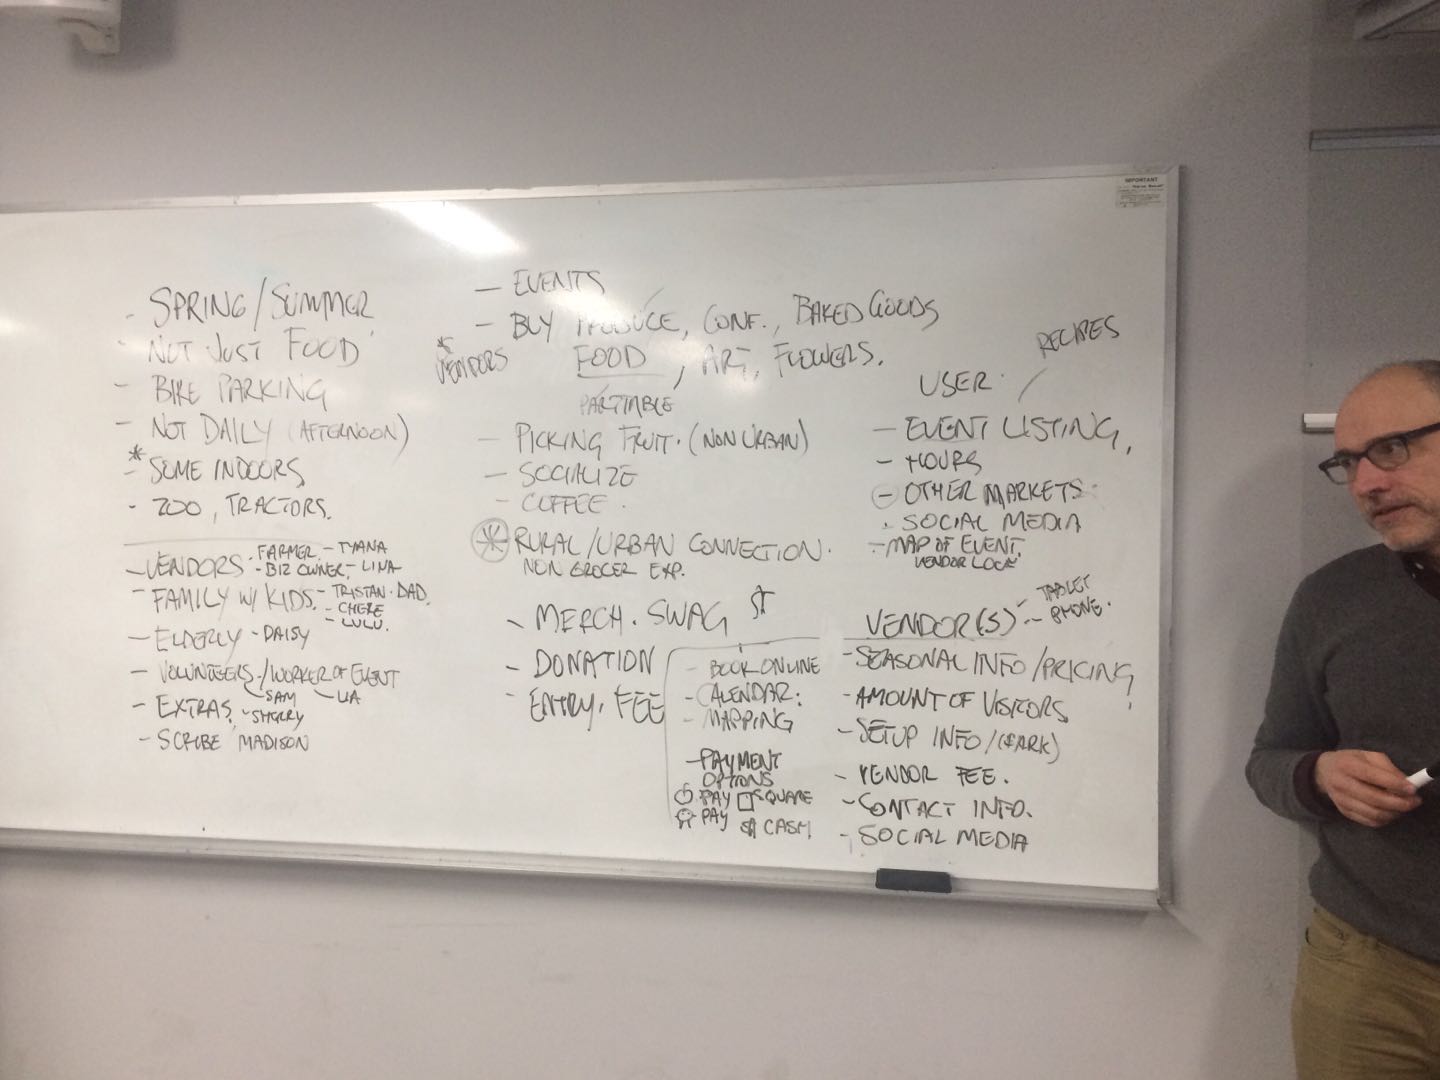 - SPRING/SUMMER
- NOT JUST FOOD
- BIKE PARKING
- NOT DAILY (AFTERNOON)
* - SOME INDOORS
- ZOO, TRACTORS.
- VENDORS - FARMER - TYANA
- BIZ OWNER - LINA
- FAMILY W/ KIDS - TRISTAN - DAD.
- CHERE
- LULU.
- ELDERLY - DAISY
- VOLUNTEERS / WORKER OF EVENT
SAM LIA
- EXTRAS - SHERRY
- SCRUBE MADISON
- EVENTS
- BUY PRODUCE, CONF., BAKED GOODS
* VENDORS FOOD, ART, FLOWERS.
- PICKING FRUIT. (NON URBAN)
- SOCIALIZE
- COFFEE.
* RURAL/URBAN CONNECTION.
NON GROCER EXP.
- MERCH. SWAG $
- DONATION
- ENTRY. FEE
- BOOK ONLINE
- CALENDAR.
- MAPPING
- PAYMENT
OPTIONS
PAY SQUARE
PAY $ CASH
RECIPES
USER
- EVENT LISTING,
- HOURS
- OTHER MARKETS
- SOCIAL MEDIA
- MAP OF EVENT,
VENDOR
VENDOR(S) - TABLET
- PHONE.
- SEASONAL INFO/PRICING
- AMOUNT OF VISITORS
- SETUP INFO/(PARK)
- VENDOR FEE.
- CONTACT INFO.
- SOCIAL MEDIA
IMPORTANT